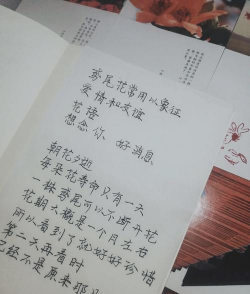 鸢尾花常用以象征
爱情和友谊
花语
想念你 好消息
朝花夕逝
每朵花寿命只有一天
一株鸢尾可以不断开花
花期大概是一个月左右
所以看到了就好好珍惜
第二天再看时
已经不是原来那